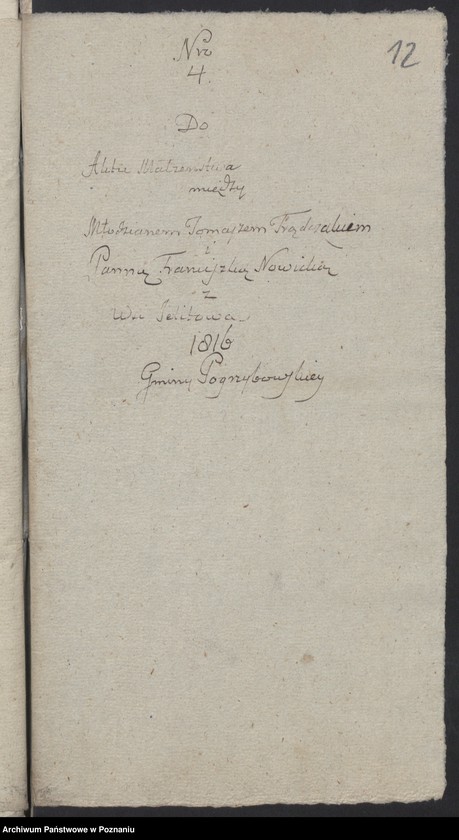 12
Nro
4.
Do
Aktu Małżeństwa
między
Młodzianem Tomaszem Frądczakiem
i
Panną Franciszką Nowicką
z
Wsi Jelitowa
1816
Gminy Pogrzybowskiey
Archiwum Państwowe w Poznaniu